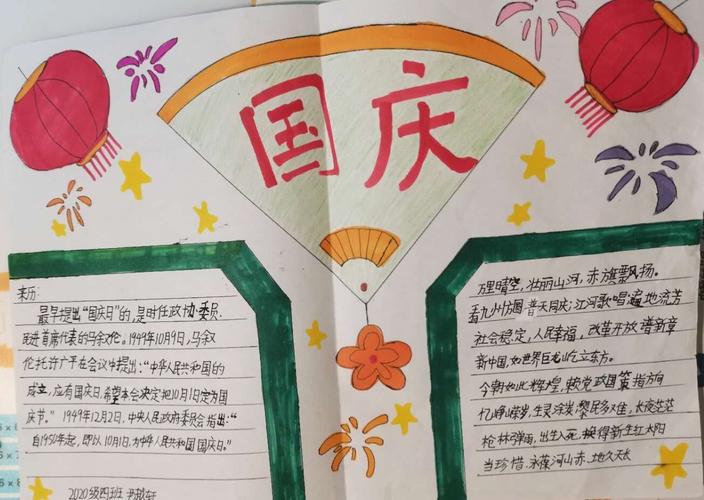 国庆
来历:
最早提出“国庆日”的,是时任政协委员、
民进首席代表的马叙伦。1949年10月9日,马叙
伦托许广平在会议中提出:“中华人民共和国的
成立,应有国庆日,希望本会决定把10月1日定为国
庆节。”1949年12月2日,中央人民政府委员会指出:“
自1950年起,即以10月1日,为中华人民共和国国庆日。”
2020级四班
万里晴空,壮丽山河,赤旗飘扬。
看九州方圆,普天同庆;江河歌唱,遍地流芳
社会稳定,人民幸福,改革开放谱新章
新中国,如世界巨龙,屹立东方。
今朝如此辉煌,赖党政国策指方向
忆峥嵘岁,生灵涂炭,黎民多难,长夜茫茫
枪林弹雨,出生入死,换得新生红太阳
当珍惜,永葆河山赤,地久天长